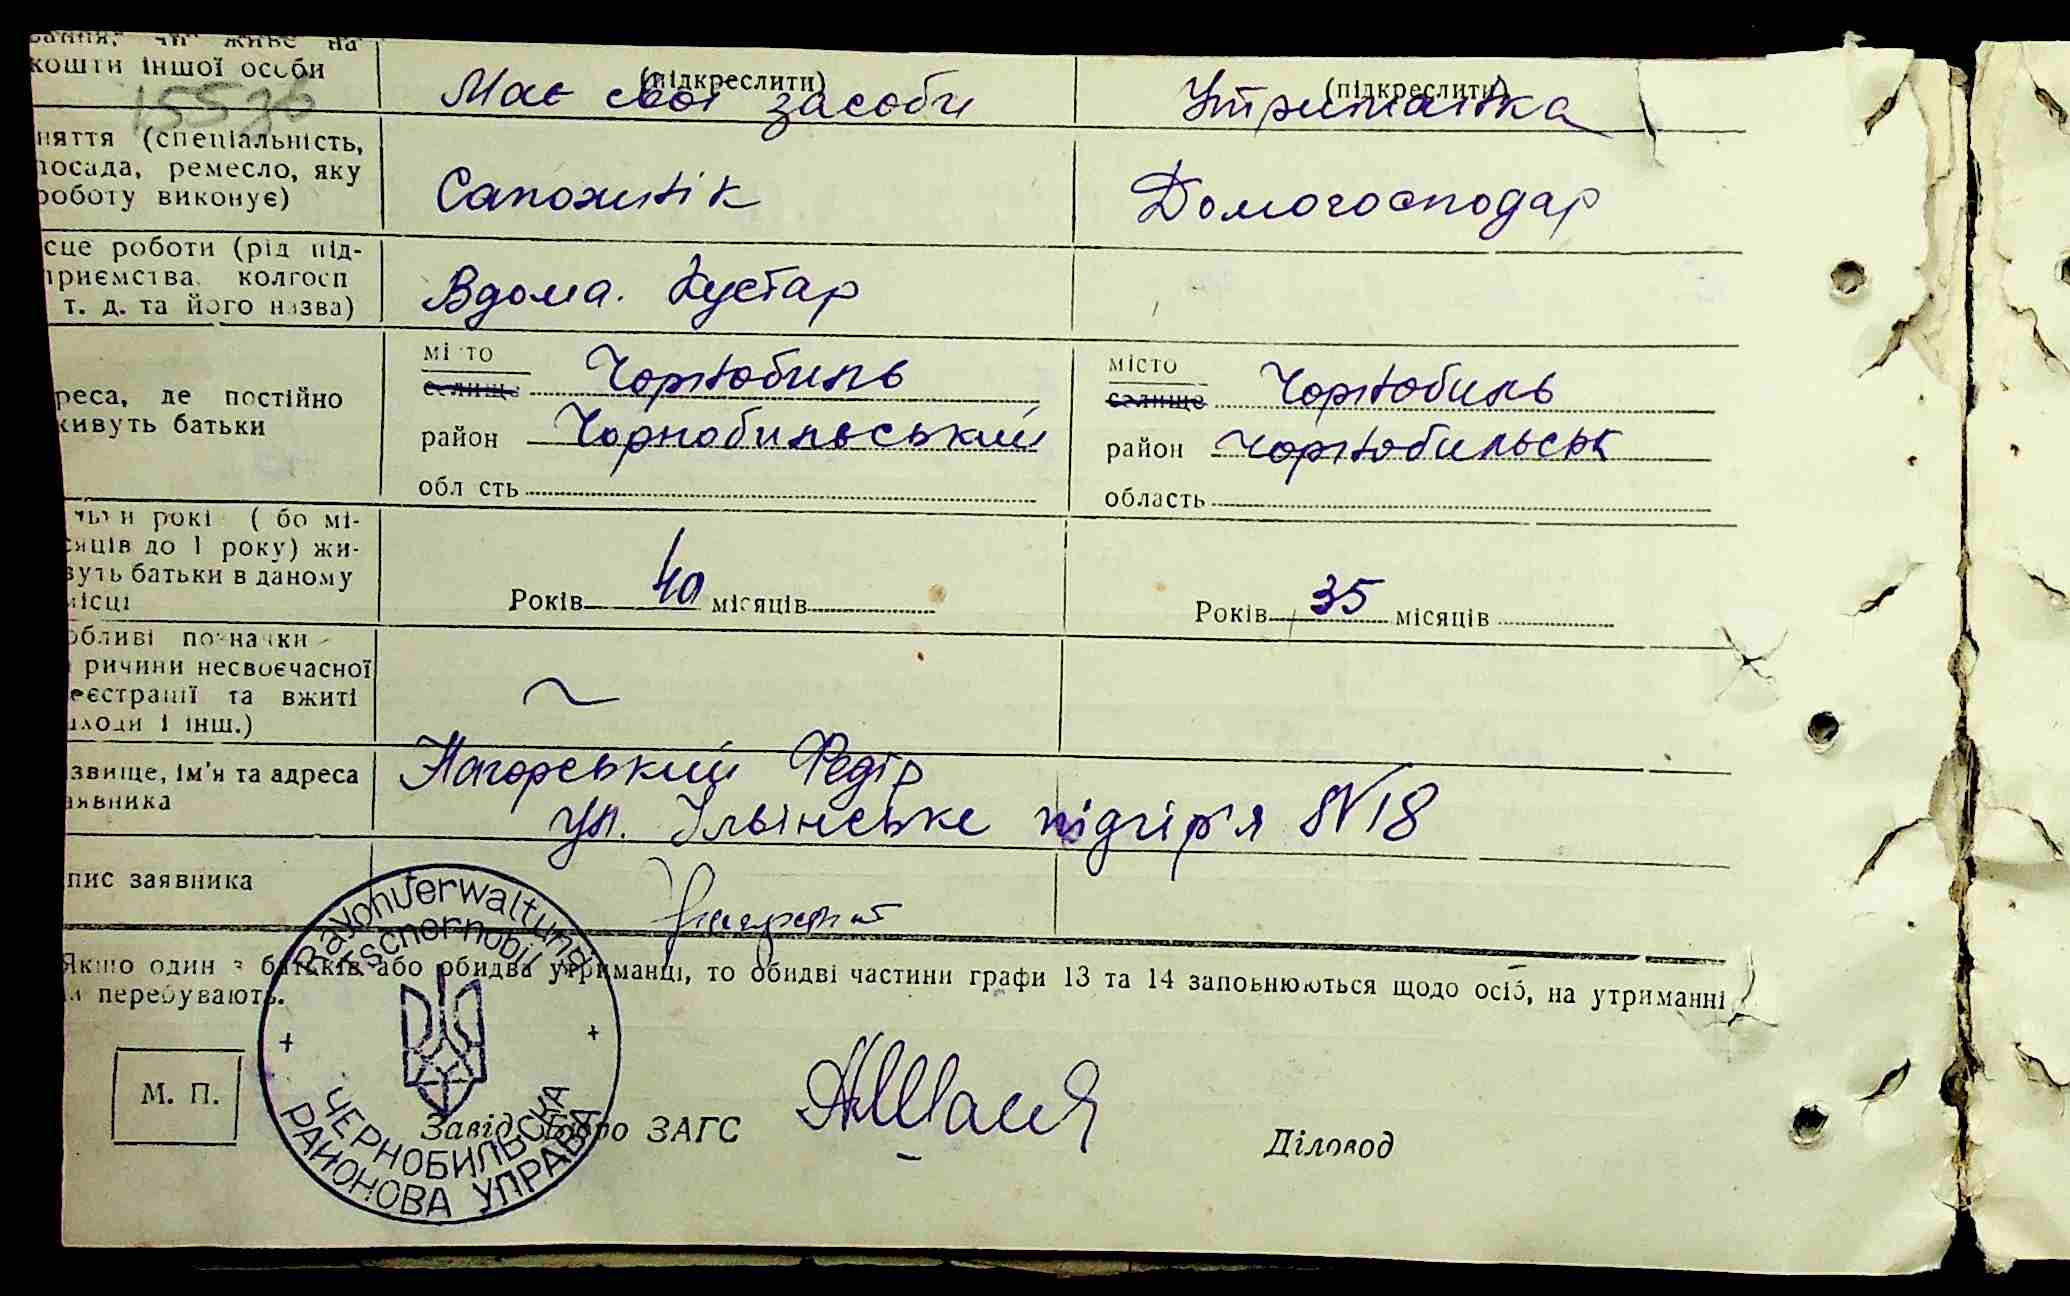 вання, чи живе на
кошти іншої особи
(підкреслити) (підкреслити)
Має свої засоби Утриманка
15536
няття (спеціальність,
посада, ремесло, яку
роботу виконує)
Сапожнік Домогосподар
сце роботи (рід під-
приємства, колгосп
т. д. та його назва)
Вдома. Кустар
місто Чорнобиль місто Чорнобиль
селище селище
реса, де постійно
живуть батьки
район Чорнобильський район Чорнобильськ
область область
льки років ( бо мі-
сяців до 1 року) жи-
вуть батьки в даному
місці
Років 40 місяців Років 35 місяців
обливі позначки
ричини несвоєчасної
реєстрації та вжиті
аходи і інш.)
звище, ім'я та адреса
аявника
Нагорський Федір
ул. Ільїнське підгір'я №18
пис заявника
Якщо один з батьків або обидва утриманці, то обидві частини графи 13 та 14 заповнюються щодо осіб, на утриманні
перебувають.
Rayonverwaltung
Tschernobil
ЧЕРНОБИЛЬСЬКА
РАЙОНОВА УПРАВА
М. П.
Завід. Бюро ЗАГС
Діловод